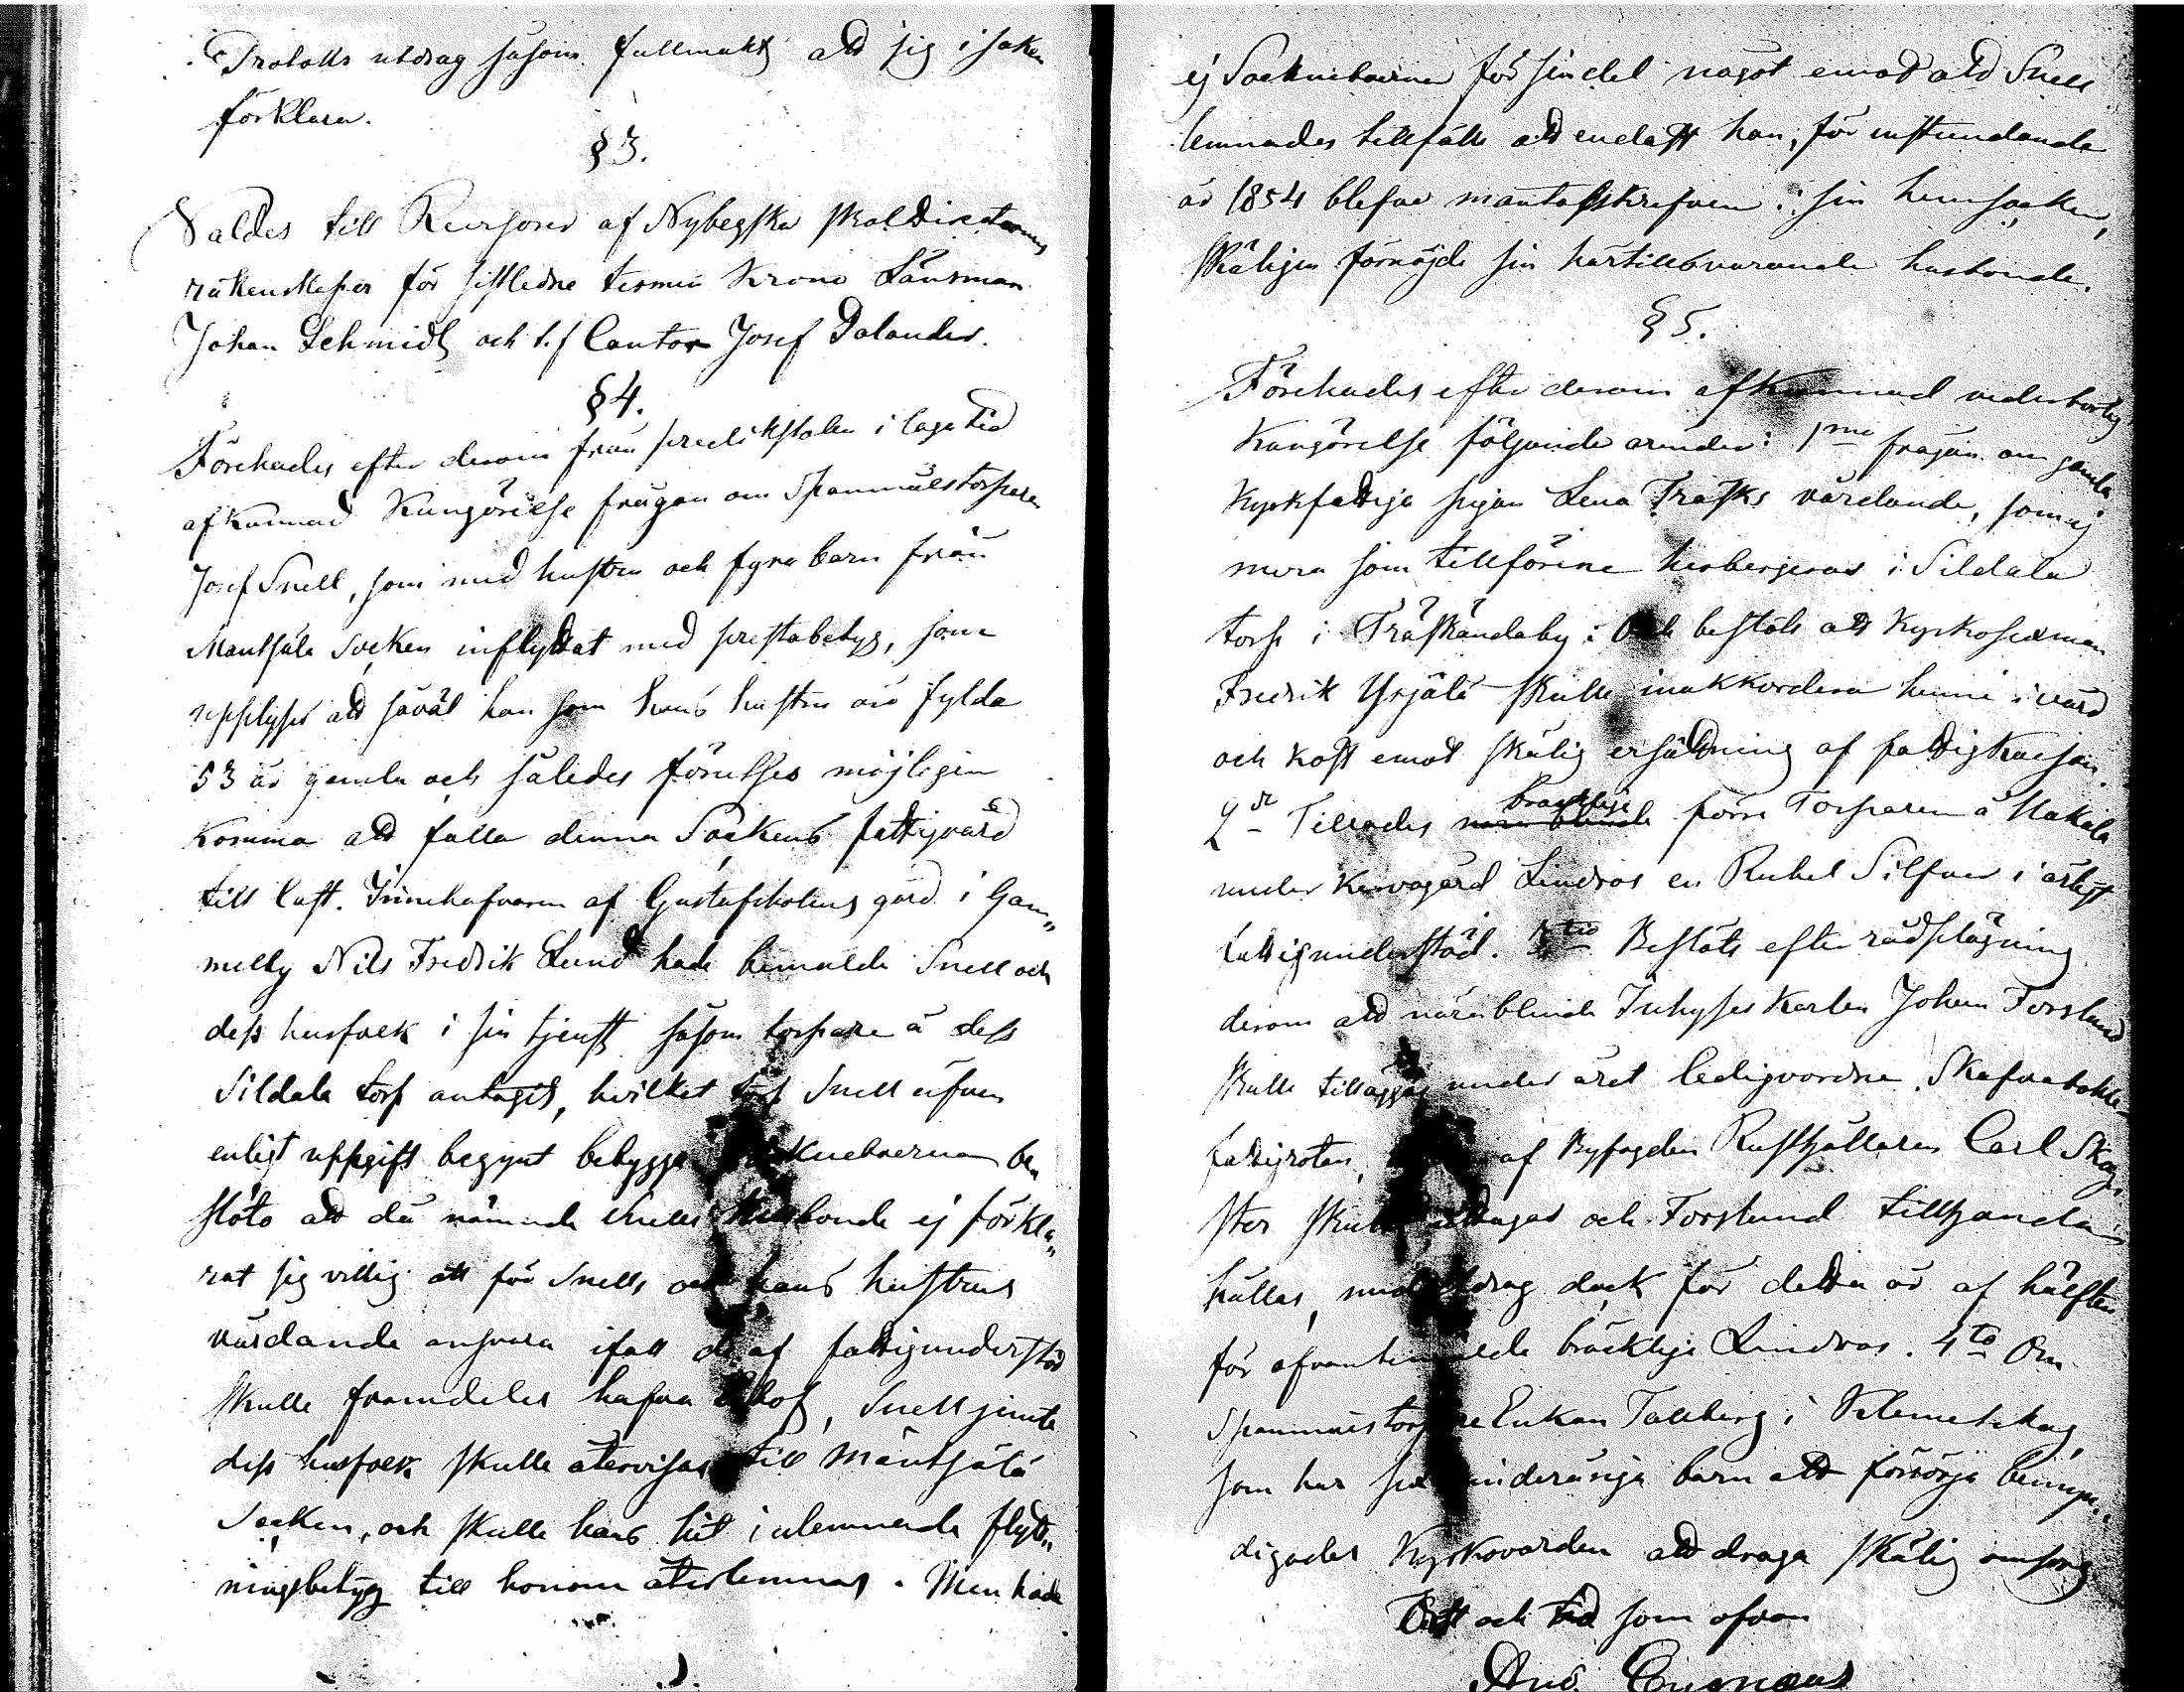 Protokolls utdrag såsom fullmakt att sig i saken
förklara.
§ 3.
Valdes till Revisorer af Nybegska skoldirektionens
räkenskaper för sistledne termin Krono Länsman
Johan Schmidt och t.f Cantor Josef Dalander.
§ 4.
Förehades efter derom från predikstolen i laga tid
afkunnad Kungörelse frågan om Spanmålstorparen
Josef Snell, som med hustru och fyra barn från
Mäntsälä Socken inflyttat med prestabetyg, som
upplyser att såväl han som hans hustru äro fylda
53 år gamla och således förutses möjligen
komma att falla denna Sockens fattigvård
till last. Innehafvaren af Gustafsholms gård i Gam„
melby Nils Fredrik Lund hade bemälde Snell och
dess husfolk i sin tjenst såsom torpare å dess
Sildala torp antagit, hvilket torp Snell äfven
enligt uppgift begynt bebygga Sockneboerna be„
slöto att då nämnde Snells Husbonde ej förkla„
rat sig villig att för Snells och hans hustrus
vårdande ansvara ifall de af fattigunderstöd
skulle framdeles hafva behof, Snell jemte
dess husfolk skulle återvisas till Mäntsälä
Socken, och skulle hans hit inlemnade flytt„
ningsbetyg till honom återlemnas. Men hade
ej Sockneboerna för sin del något emot att Snell
lemnades tillfälle att endast han, för instundande
år 1854 blefve mantalskrefven i sin hemsocken,
skäligen förnöjde sin härtillsvarande husbonde.
§ 5.
Förehades efter derom afkunnad vederbörlig
Kungörelse följande ärender: 1mo frågan om gamla
Kyrkfattiga pigan Lena Träsks vårdande, som ej
mera som tillförene herbergeras i Sildala
torp i Träskändaby: Och beslöts att Kyrkosexman
Fredrik Yrjälä skulle inakkordera henne i vård
och kost emot skälig ersättning af fattigkassan.
2do Tillades bräcklige förre Torparen å Hakala
under Kervogård Lindros en Rubel Silfver i årligt
fattigunderstöd. 3tio Beslöts efter rådplägning
derom att nära blinde Inhyses Karlen Johan Forslund
skulle tilläggas under året ledigvordne Skafvaböle
fattigroten, af Byfogden Rusthållaren Carl Skog„
ster skulle uttagas och Forslund tillhanda
hållas, med afdrag dock för detta år af hälften
för ofvanbemälde bräcklige Lindros. 4to Om
Spanmålstorpare Enkan Tallberg i Klemetskog
som har sex minderåriga barn att försörja bemyn„
digades Kyrkovärden att draga skälig omsorg
Ort och tid som ofvan
And. Cygnæus